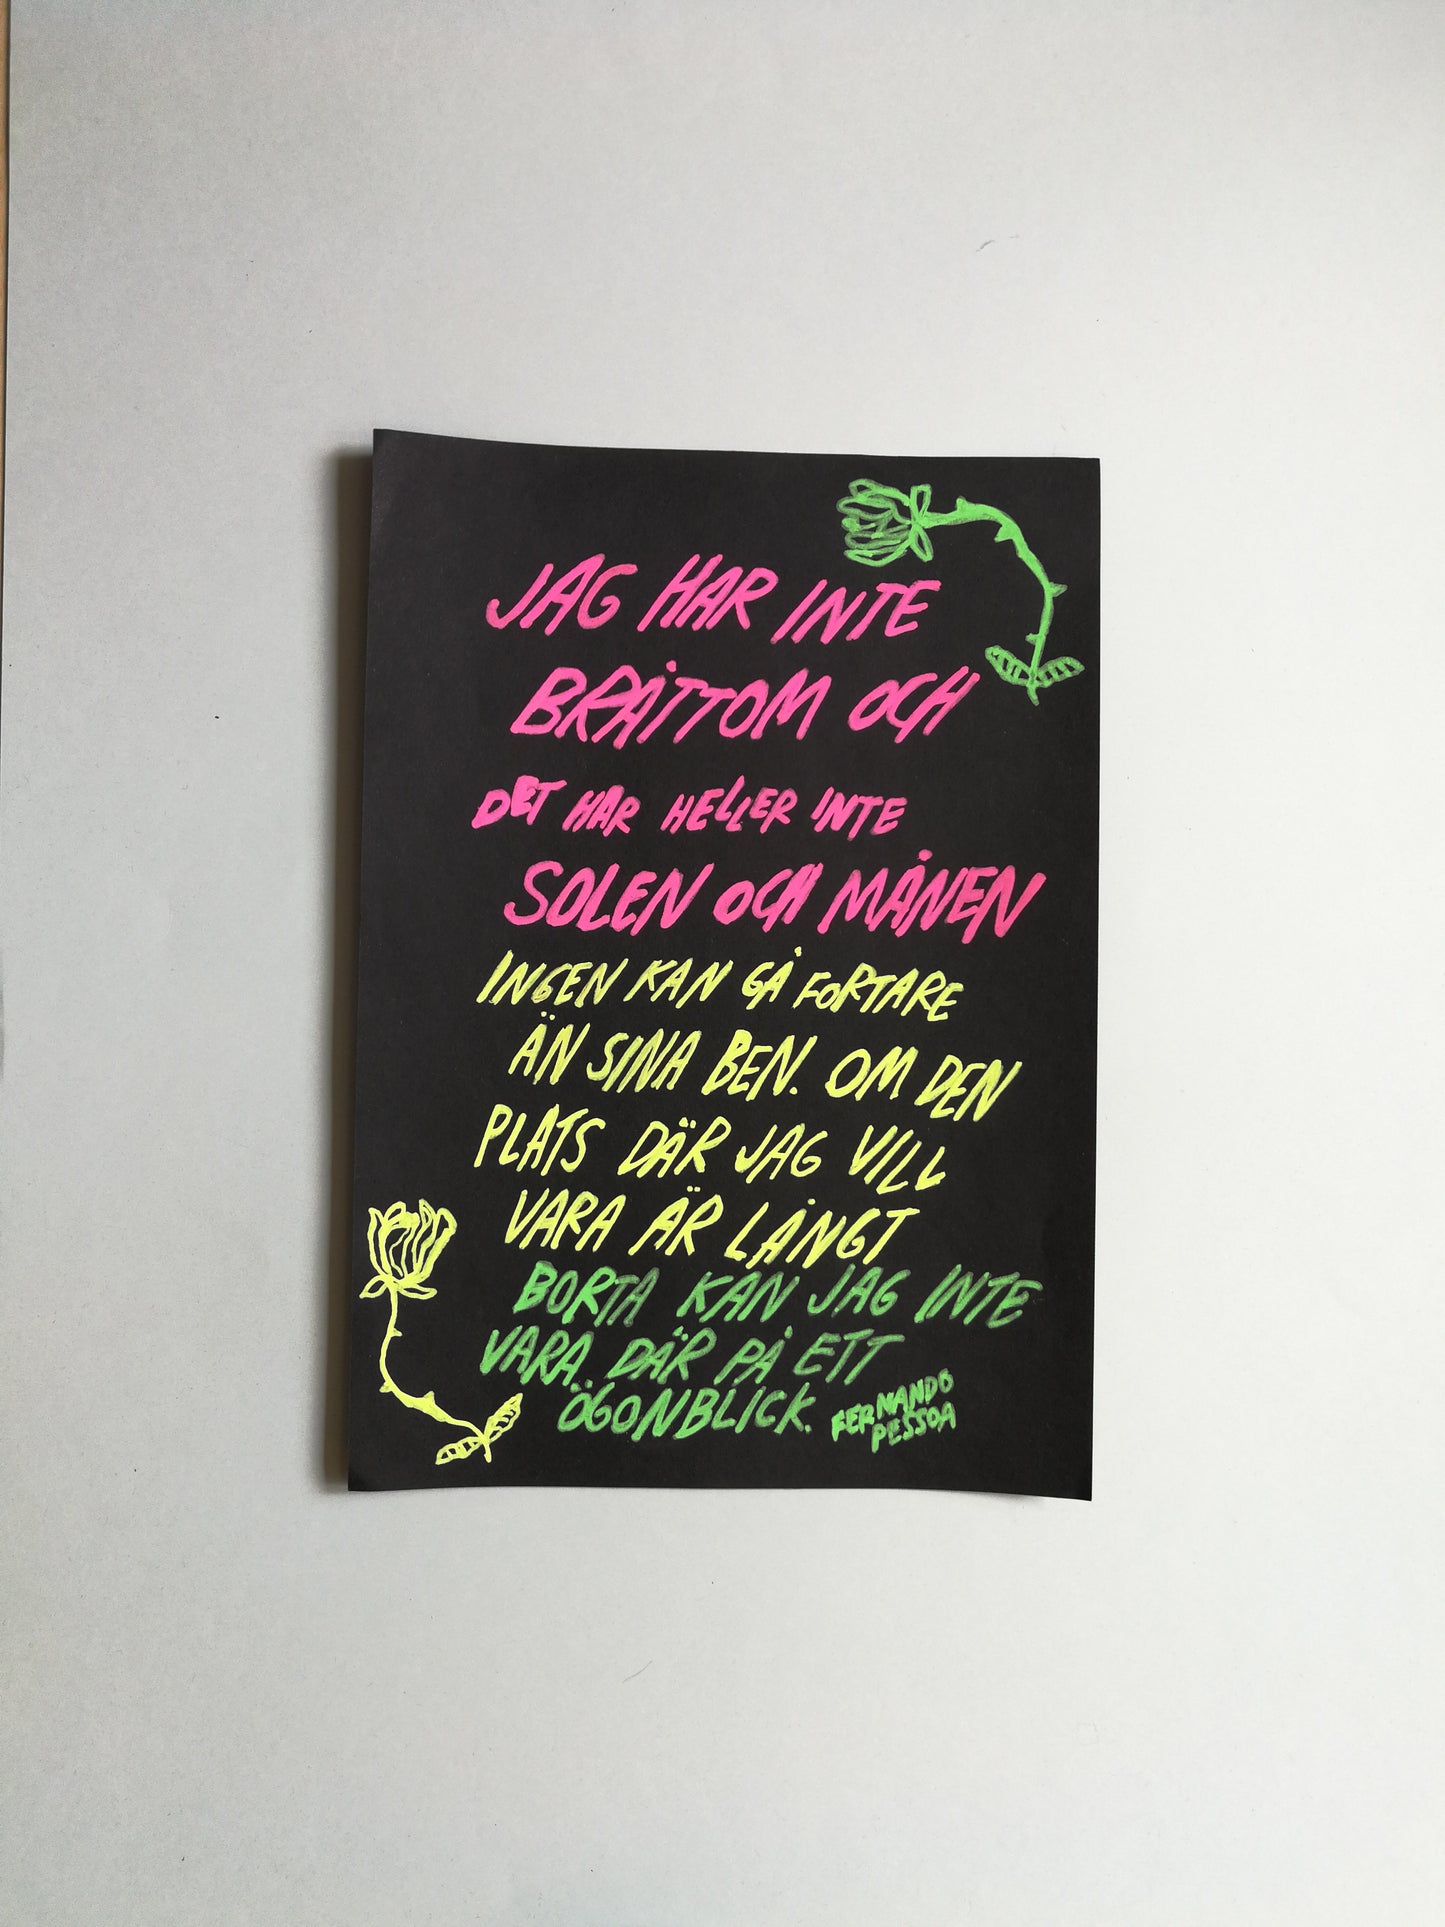 JAG HAR INTE
BRÅTTOM OCH
DET HAR HELLER INTE
SOLEN OCH MÅNEN
INGEN KAN GÅ FORTARE
ÄN SINA BEN. OM DEN
PLATS DÄR JAG VILL
VARA ÄR LÅNGT
BORTA KAN JAG INTE
VARA DÄR PÅ ETT
ÖGONBLICK.
FERNANDO
PESSOA